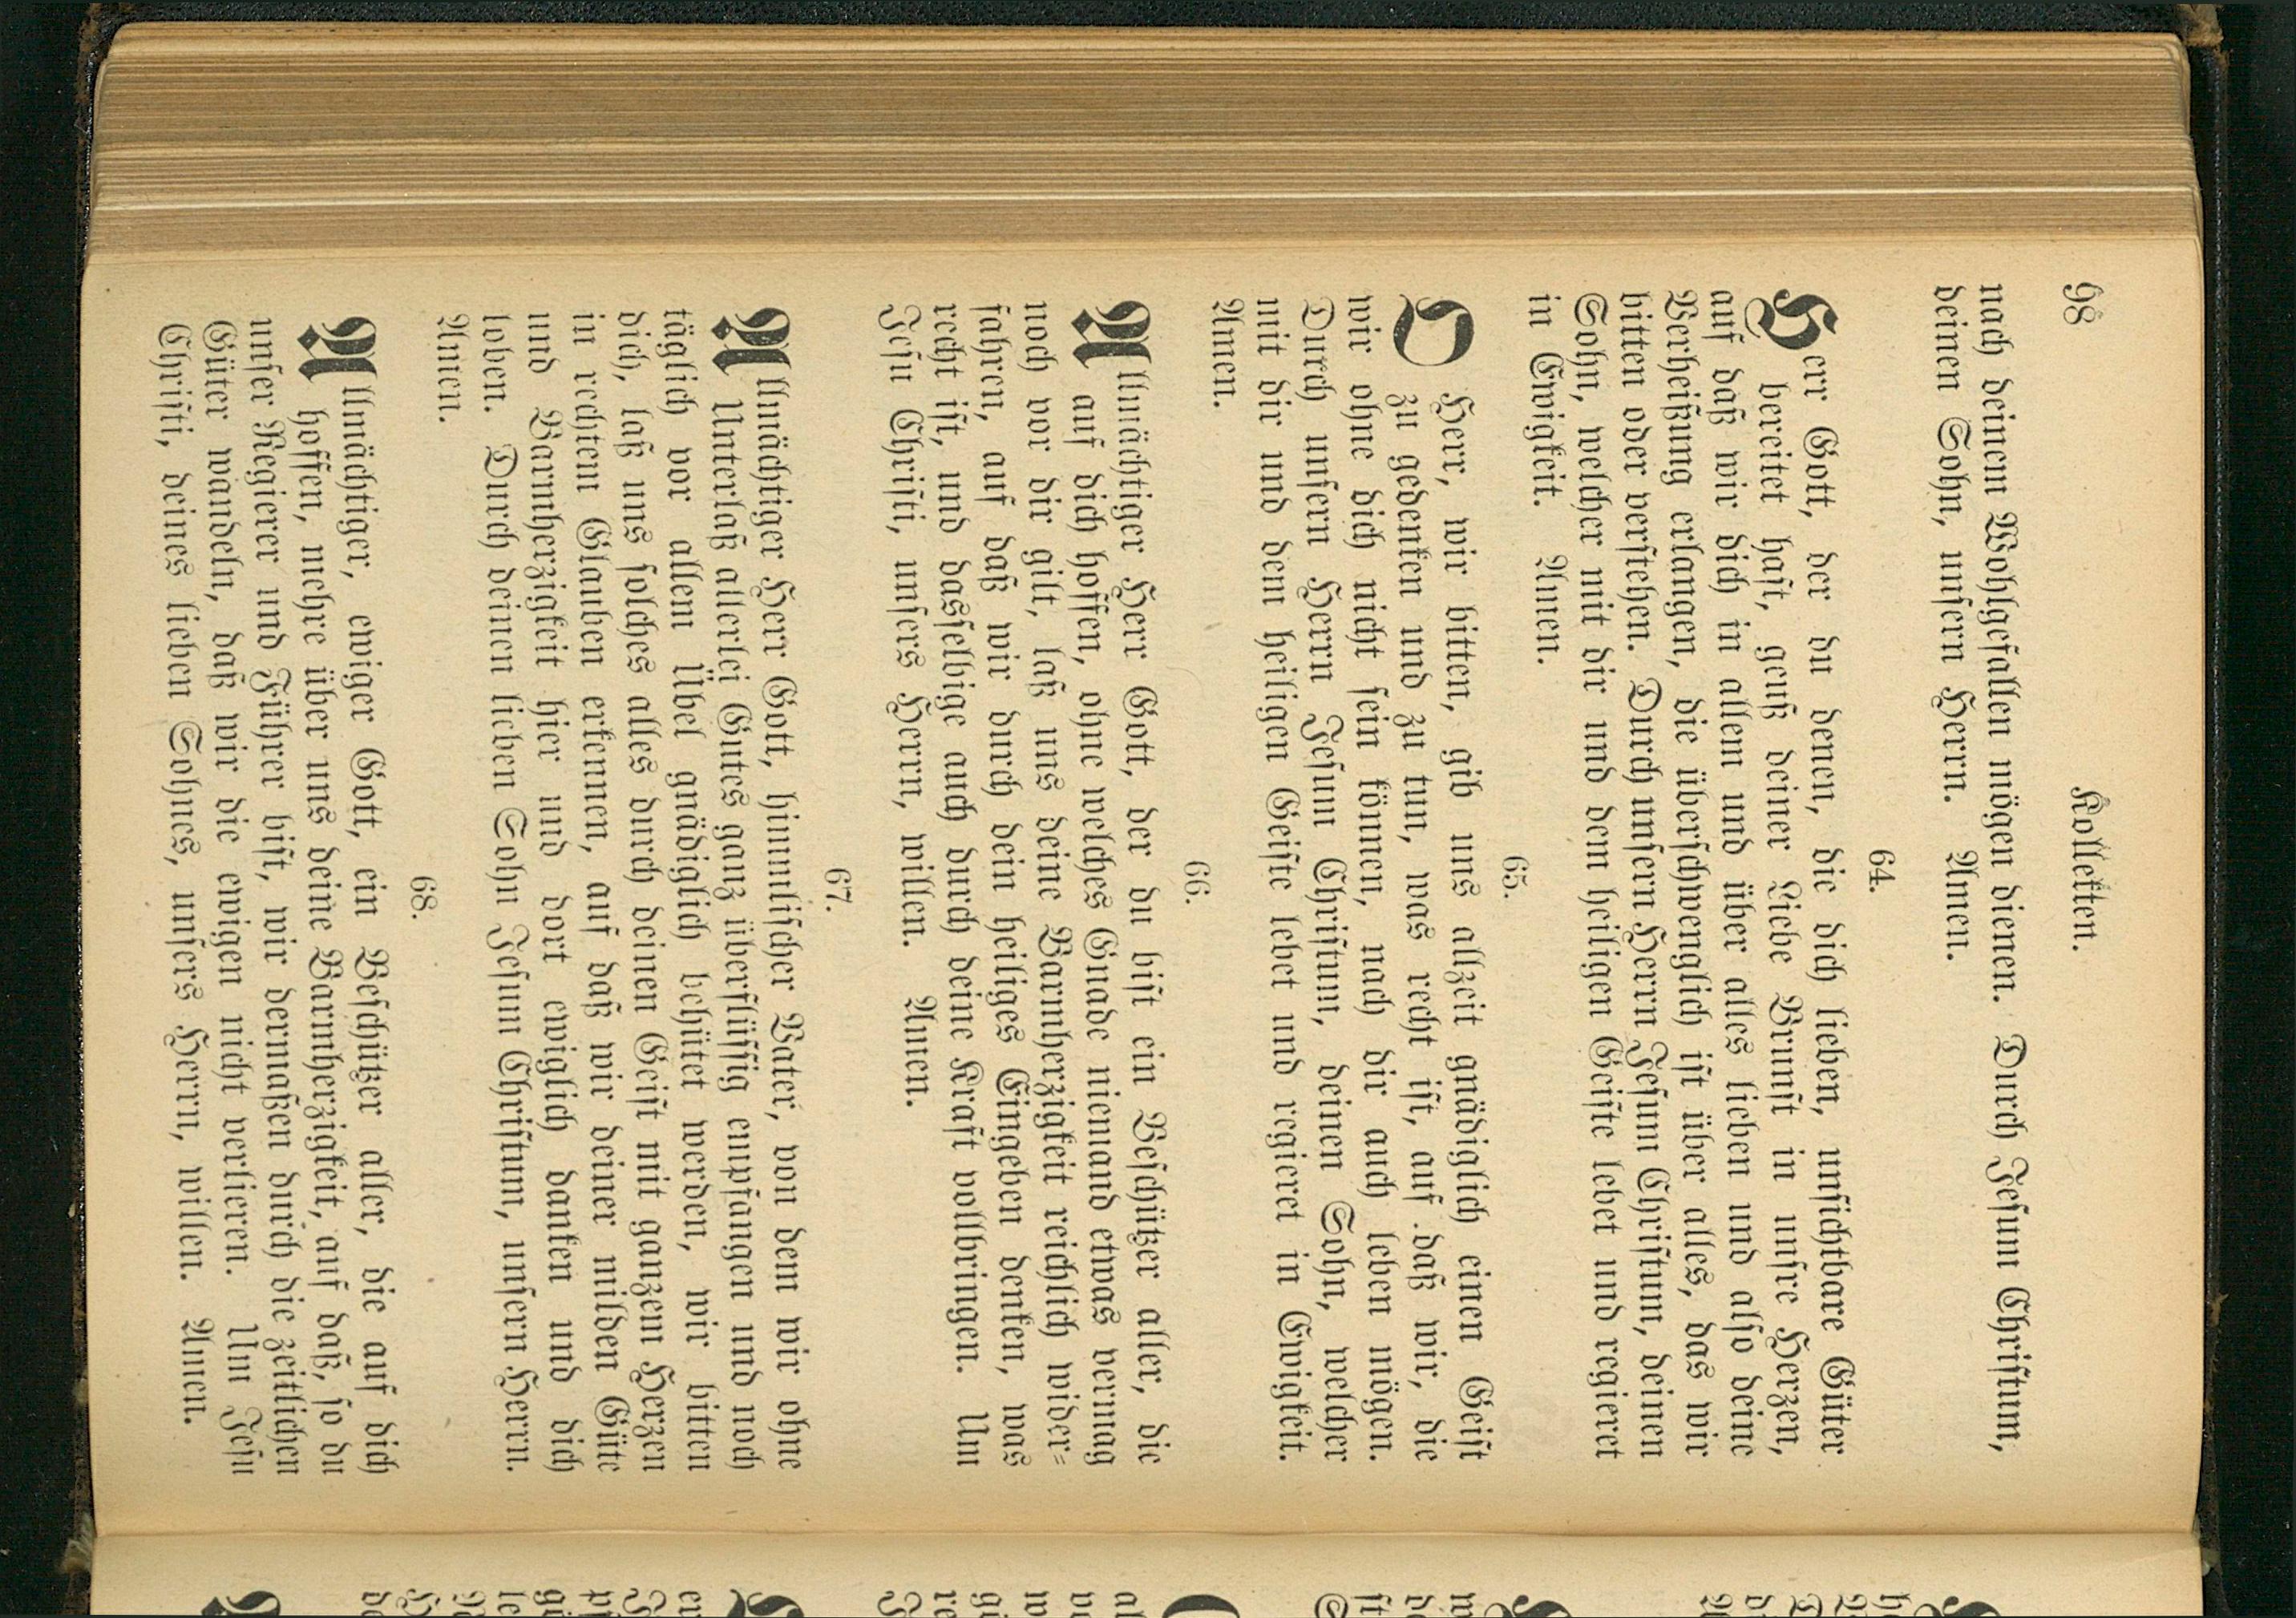 98 Kollekten.
nach deinem Wohlgefallen mögen dienen. Durch Jesum Christum,
deinen Sohn, unsern Herrn. Amen.
64.
Herr Gott, der du denen, die dich lieben, unsichtbare Güter
bereitet hast, geuß deiner Liebe Brunst in unsre Herzen,
auf daß wir dich in allem und über alles lieben und also deine
Verheißung erlangen, die überschwenglich ist über alles, das wir
bitten oder verstehen. Durch unsern Herrn Jesum Christum, deinen
Sohn, welcher mit dir und dem heiligen Geiste lebet und regieret
in Ewigkeit. Amen.
65.
O Herr, wir bitten, gib uns allzeit gnädiglich einen Geist
zu gedenken und zu tun, was recht ist, auf daß wir, die
wir ohne dich nicht sein können, nach dir auch leben mögen.
Durch unsern Herrn Jesum Christum, deinen Sohn, welcher
mit dir und dem heiligen Geiste lebet und regieret in Ewigkeit.
Amen.
66.
Allmächtiger Herr Gott, der du bist ein Beschützer aller, die
auf dich hoffen, ohne welches Gnade niemand etwas vermag
noch vor dir gilt, laß uns deine Barmherzigkeit reichlich wider-
fahren, auf daß wir durch dein heiliges Eingeben denken, was
recht ist, und dasselbige auch durch deine Kraft vollbringen. Um
Jesu Christi, unsers Herrn, willen. Amen.
67.
Allmächtiger Herr Gott, himmlischer Vater, von dem wir ohne
Unterlaß allerlei Gutes ganz überflüssig empfangen und noch
täglich vor allem Übel gnädiglich behütet werden, wir bitten
dich, laß uns solches alles durch deinen Geist mit ganzem Herzen
in rechtem Glauben erkennen, auf daß wir deiner milden Güte
und Barmherzigkeit hier und dort ewiglich danken und dich
loben. Durch deinen lieben Sohn Jesum Christum, unsern Herrn.
Amen.
68.
Allmächtiger, ewiger Gott, ein Beschützer aller, die auf dich
hoffen, mehre über uns deine Barmherzigkeit, auf daß, so du
unser Regierer und Führer bist, wir dermaßen durch die zeitlichen
Güter wandeln, daß wir die ewigen nicht verlieren. Um Jesu
Christi, deines lieben Sohnes, unsers Herrn, willen. Amen.